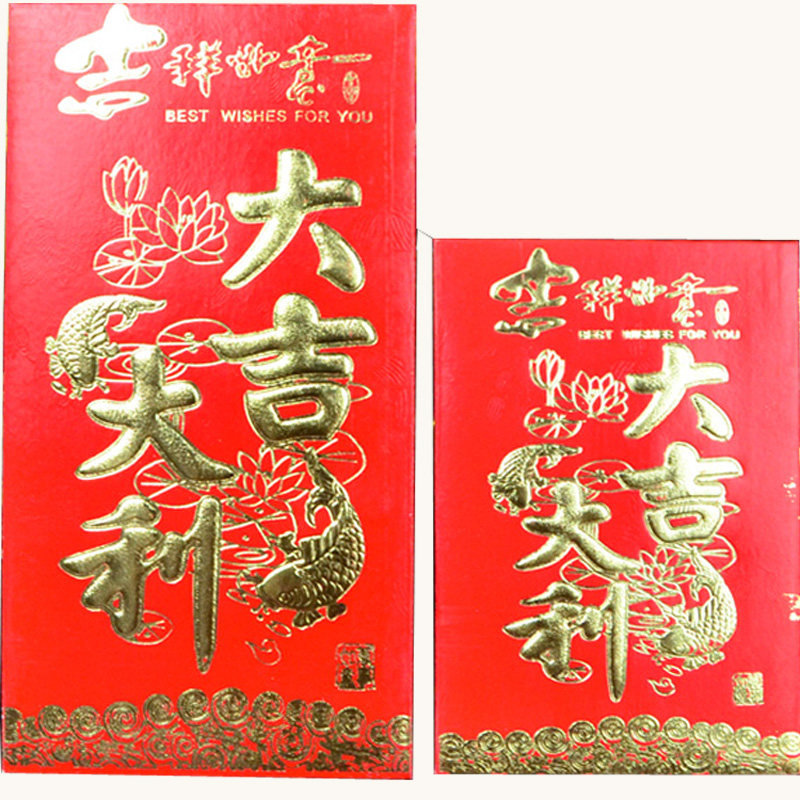 吉祥如意
BEST WISHES FOR YOU
大吉
大利
吉祥如意
BEST WISHES FOR YOU
大吉
大利